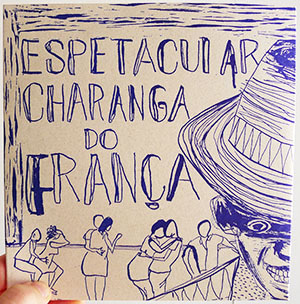 ESPETACULAR
CHARANGA
DO
FRANÇA